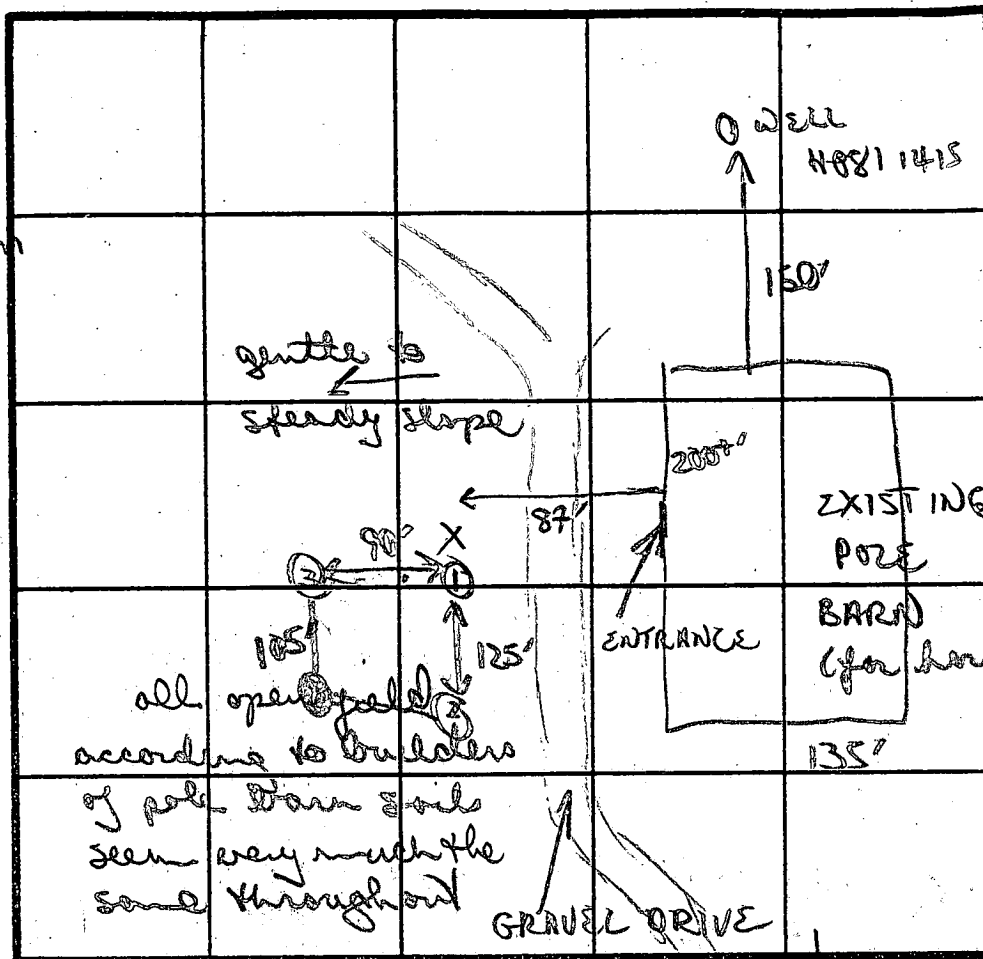 WELL
HO81 1415
150'
gentle to
steady slope
200+'
87'
EXISTING
POLE
BARN
(for hor
ENTRANCE
X
90'
1
105'
125'
2
all open field
according to builders
of pole barn soils
seem very much the
same throughout
135'
GRAVEL DRIVE